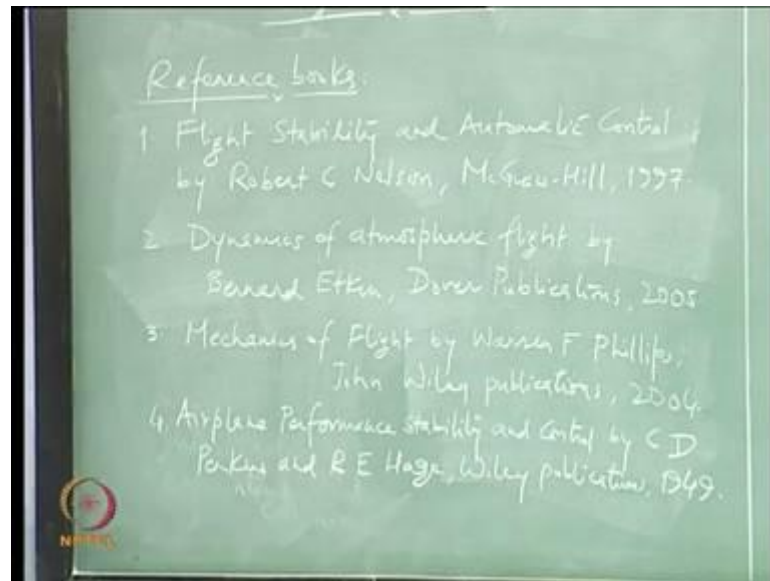 Reference books:
1. Flight Stability and Automatic Control
by Robert C Nelson, McGraw-Hill, 1997
2. Dynamics of atmospheric flight by
Bernard Etkin, Dover Publications, 2005
3. Mechanics of Flight by Warren F Phillips,
John Wiley publications, 2004.
4. Airplane Performance stability and control by C D
Perkins and R E Hage, Wiley publication, 1949.
NPTEL